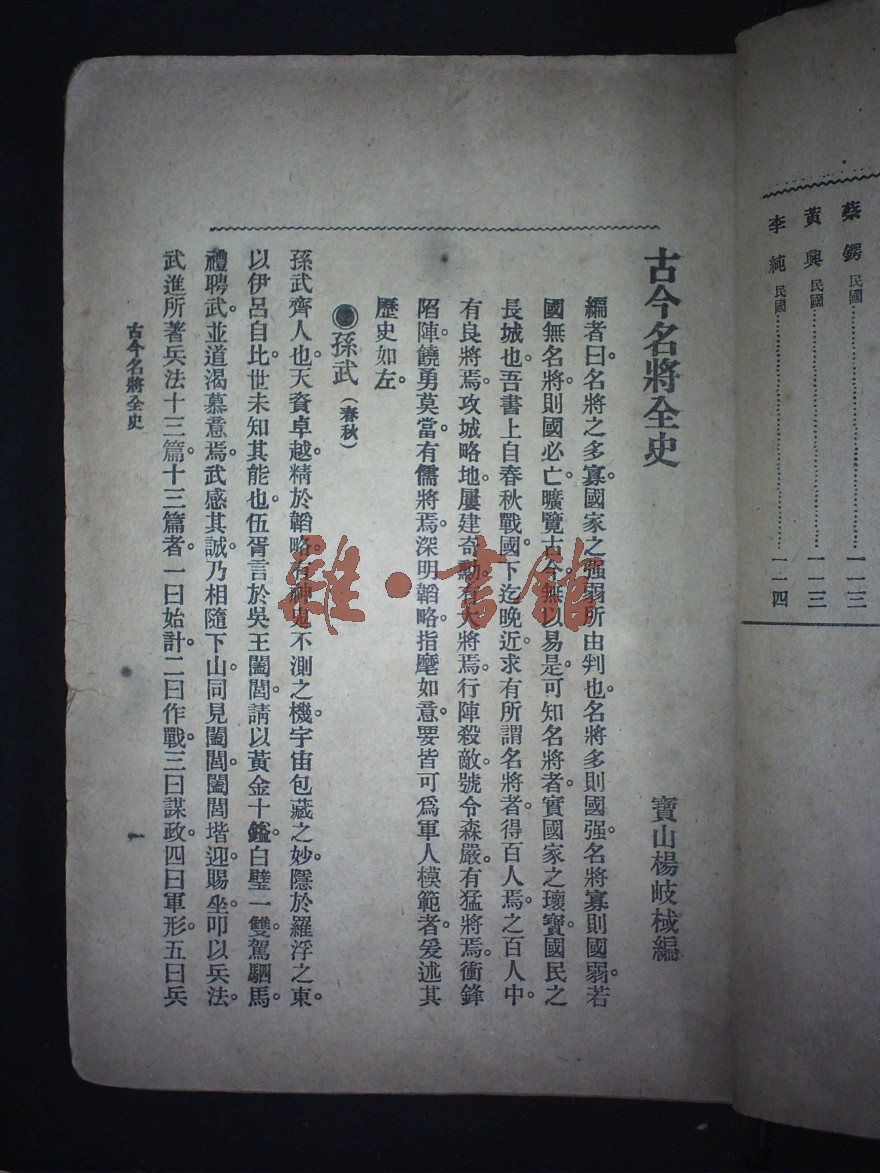 蔡鍔 民國……………………一一三
黃興 民國……………………一一三
李純 民國……………………一一四
古今名將全史
寶山楊岐棫編
編者曰。名將之多寡。國家之强弱所由判也。名將多則國强。名將寡則國弱。若
國無名將。則國必亡。曠覽古今。無以易是。可知名將者。實國家之瓌寶。國民之
長城也。吾書上自春秋戰國。下迄晚近。求有所謂名將者。得百人焉。之百人中。
有良將焉。攻城略地。屢建奇勳。有大將焉。行陣殺敵。號令森嚴。有猛將焉。衝鋒
陷陣。饒勇莫當。有儒將焉。深明韜略。指麾如意。要皆可爲軍人模範者。爰述其
歷史如左。
孫武（春秋）
孫武齊人也。天資卓越。精於韜略。有神鬼不測之機。宇宙包藏之妙。隱於羅浮之東。
以伊呂自比。世未知其能也。伍胥言於吳王闔閭。請以黃金十鎰。白璧一雙。駕駟馬。
禮聘武。並道渴慕意焉。武感其誠。乃相隨下山。同見闔閭。闔閭堦迎。賜坐。叩以兵法。
武進所著兵法十三篇。十三篇者。一曰始計。二曰作戰。三曰謀政。四曰軍形。五曰兵
古今名將全史
一
雜·書館